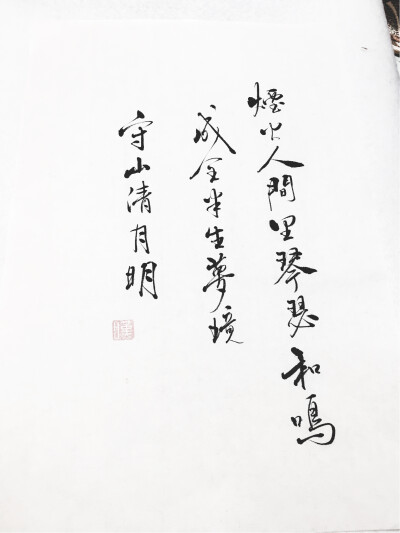 煙火人間里琴瑟和鳴
成全半生夢境
守山清月明